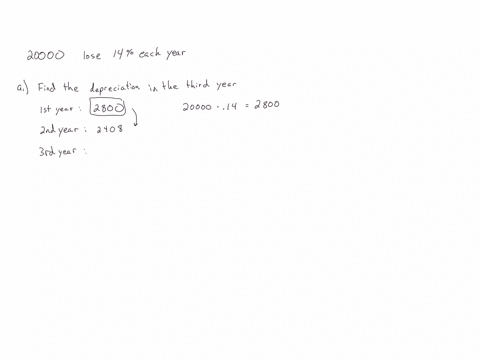 20000 lose 14% each year
a.) Find the depreciation in the third year
1st year : 2800 20000 · .14 = 2800
2nd year : 2408
3rd year :